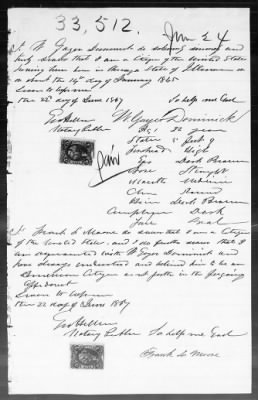 33,512.
Jun 24
I W. Gayer Dominick do solemnly swear and
truly swear that I am a Citizen of the United States
having been born in the State of
on or about the 14th day of January 1845
Sworn to before me
this 22d day of June 1867 So help me God
Geo Hillen W Gayer Dominick
Notary Public Age 22 years
Stature 5 feet 9
Forehead High
Eyes Dark Brown
Nose Straight
Paid
Mouth Medium
Chin Round
Hair Dark Brown
Complexion Dark
Face Oval
I Frank L Moore do swear that I am a Citizen
of the United States and I do further swear that I
am acquainted with W Gayer Dominick and
have always understood and believed him to be an
American Citizen as set forth in the foregoing
Affidavit
Sworn to before me
this 22 day of June 1867
Geo Hillen
Notary Public So help me God
Frank L Moore